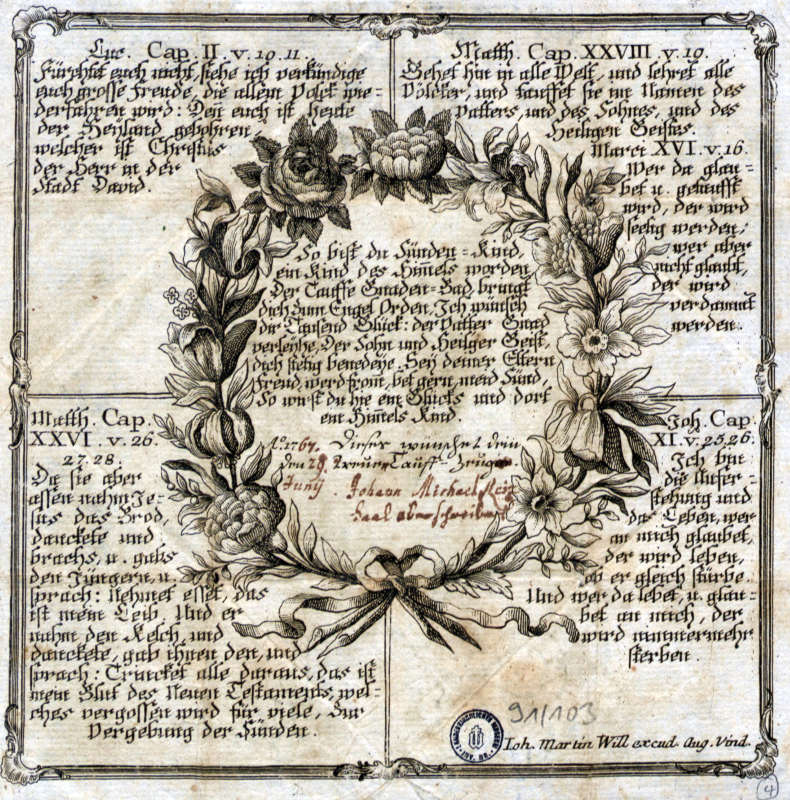 Luc. Cap. II. v. 10. 11.
Fürchtet euch nicht, siehe ich verkündige
euch grosse Freude, die allem Volck wie-
derfahren wird: Deñ euch ist heute
der Heyland gebohren,
welcher ist Christus
der Herr in der
Stadt David.
Matth. Cap. XXVIII. v. 19.
Gehet hin in alle Welt, und lehret alle
Völcker, und tauffet sie im Namen des
Vatters, und des Sohnes, und des
Heiligen Geistes.
Marci XVI. v. 16.
Wer da glau-
bet u. getaufft
wird, der wird
seelig werden;
wer aber
nicht glaubt,
der wird
verdammt
werden.
So bist du Sünden-Kind,
ein Kind des Him̃els worden
Der Tauffe Gnaden-Bad, bringt
dich zum Engel Orden, Ich wünsch
dir Tausend Glück: der Vatter Gnad
verleyhe, Der Sohn und Heilger Geist,
dich stetig benedeye. Sey deiner Eltern
Freud, werd from̃, bet gern, meid Sünd,
So wirst du hie ein Glücks und dort
ein Him̃els Kind.
A. 1767. Dieser wünschet dein
den 28 treuer Tauff-Zeuge
Junÿ. Johann Michael
Matth. Cap.
XXVI. v. 26.
27. 28.
Da sie aber
assen nahm Je-
sus das Brod,
danckete und
brachs, u. gabs
den Jüngern, u.
sprach: Nehmet esset, das
ist mein Leib. Und er
nahm den Kelch, und
danckete, gab ihnen den, und
sprach: Trincket alle daraus, das ist
mein Blut des Neuen Testaments, wel-
ches vergossen wird für viele, zur
Vergebung der Sünden.
Joh. Cap.
XI. v. 25. 26.
Ich bin
die Aufer-
stehung und
das Leben, wer
an mich glaubet,
der wird leben,
ob er gleich stürbe.
Und wer da lebet, u. glau-
bet an mich, der
wird nimmermehr
sterben.
91/103
Ioh. Martin Will excud. Aug. Vind.
4